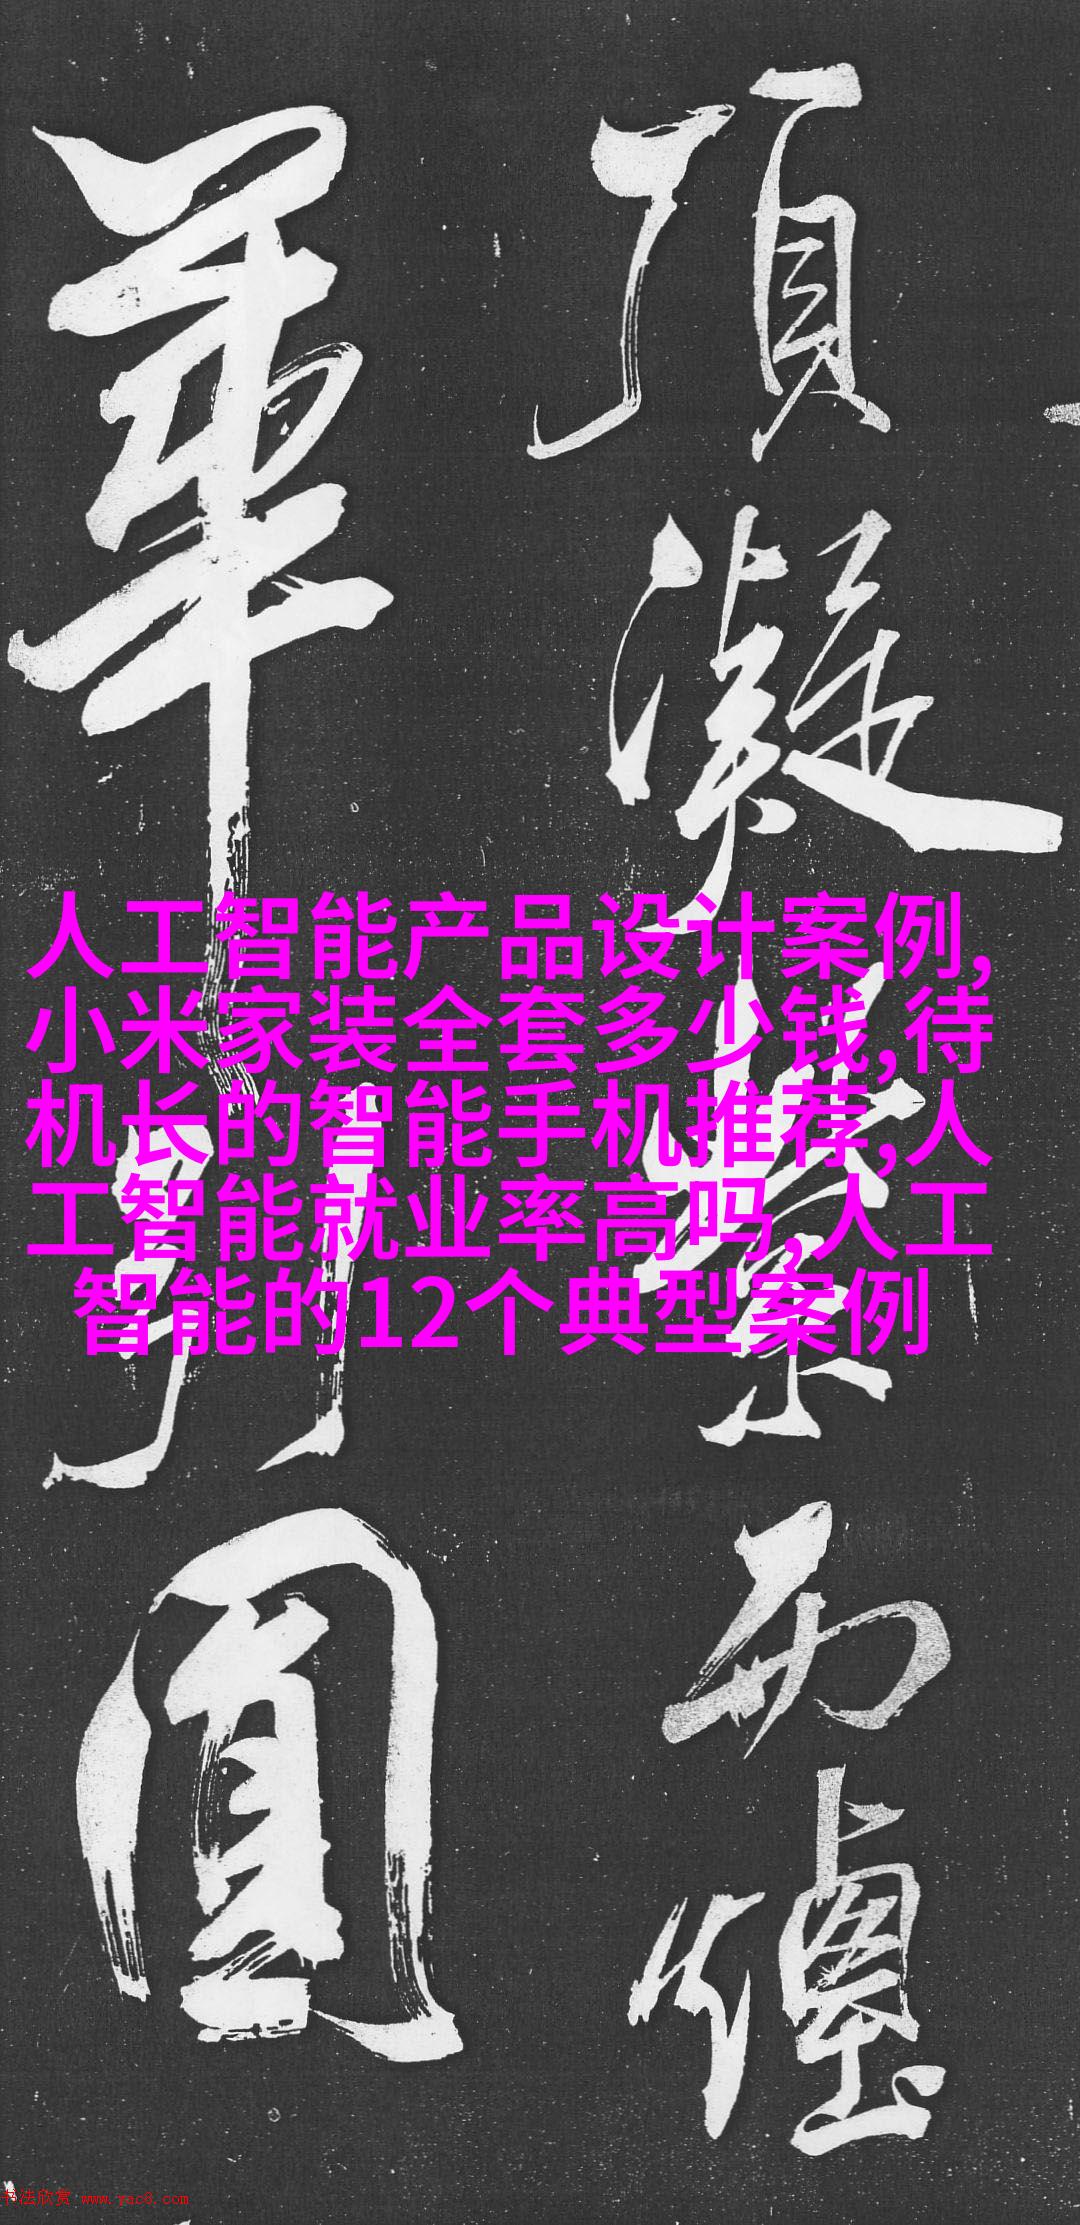 頂凝紫而
月圓
人工智能产品设计案例,
小米家装全套多少钱,待
机长的智能手机推荐,人
工智能就业率高吗,人工
智能的12个典型案例
书法欣赏 www.yac8.com